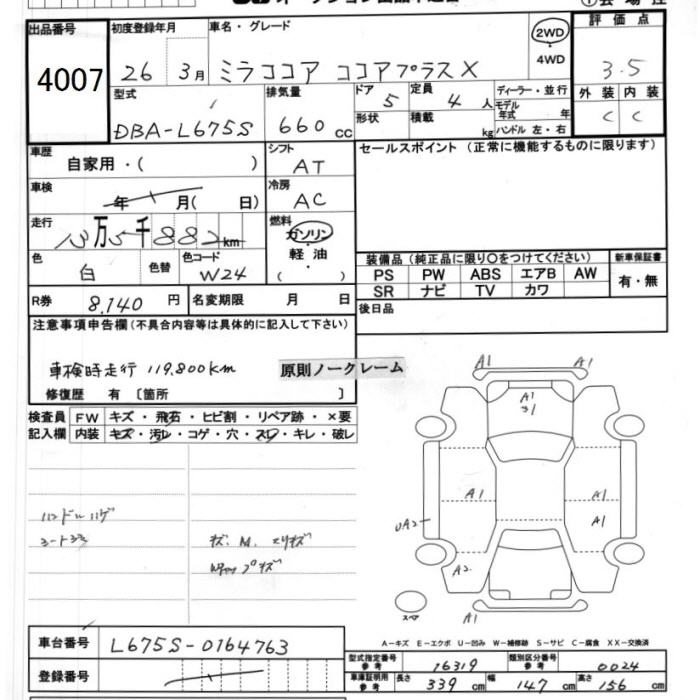 出品番号 初度登録年月 車名・グレード 2WD 4WD 評価点
4007 26 3月 ミラココア ココアプラスX 3.5
型式 DBA-L675S 排気量 660 cc ドア 5 定員 4人 ディーラー・並行 外装 内装
形状 積載 kg モデル年式 年 ハンドル 左・右 C C
車歴 自家用・( ) シフト AT セールスポイント (正常に機能するものに限ります)
車検 年 月( 日) 冷房 AC
走行 13万5千882km 燃料 ガソリン 軽油 ( )
色 白 色替 色コード W24
装備品 (純正品に限り○をつけてください) 新車保証書
PS PW ABS エアB AW 有・無
SR ナビ TV カワ
R券 8,140円 名変期限 月 日 後日品
注意事項申告欄(不具合内容等は具体的に記入して下さい)
車検時走行 119,800km 原則ノークレーム
修復歴 有 〔箇所 〕
検査員 FW キズ・飛石・ヒビ割・リペア跡・×要
記入欄 内装 キズ・汚レ・コゲ・穴・スレ・キレ・破レ
A1 A1
A1
A1 A1
A1
UA2
A2
A1
スペア
ハンドルハゲ
キズ、M、スリキズ
A-キズ E-エクボ U-凹み W-補修跡 S-サビ C-腐食 XX-交換済
車台番号 L675S-0164763
型式指定番号 参考 16319 類別区分番号 参考 0024
登録番号
車庫証明用 参考 長さ 339 cm 幅 147 cm 高さ 156 cm